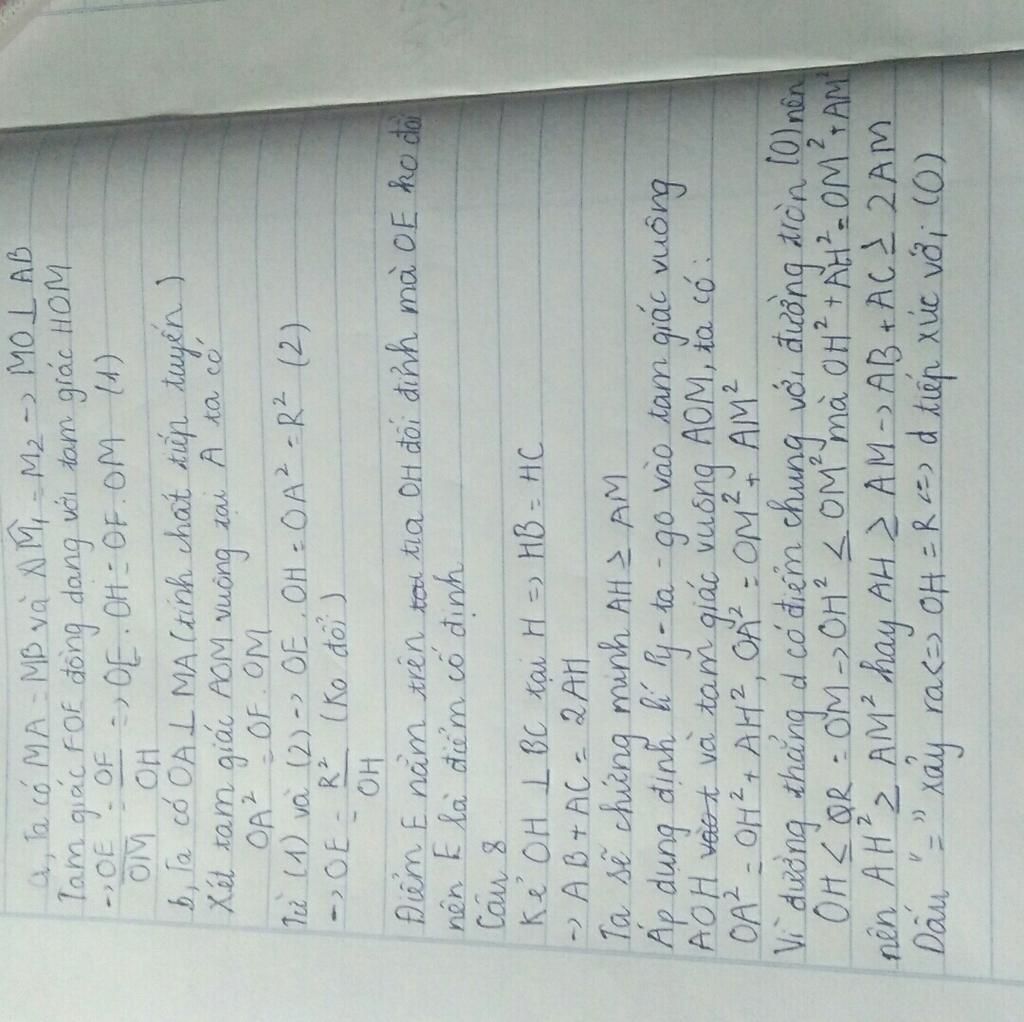 a, Ta có MA = MB và M̂₁ = M₂ -> MO ⊥ AB
Tam giác FOE đồng dạng với tam giác HOM
-> OE/OM = OF/OH => OE . OH = OF . OM (1)
b, Ta có OA ⊥ MA (tính chất tiếp tuyến)
Xét tam giác AOM vuông tại A ta có
OA² = OF . OM
Từ (1) và (2) -> OE . OH = OA² = R² (2)
-> OE = R²/OH (Ko đổi)
Điểm E nằm trên tia OH đối đỉnh mà OE ko đổi
nên E là điểm cố định
Câu 8
Kẻ OH ⊥ BC tại H => HB = HC
-> AB + AC = 2AH
Ta sẽ chứng minh AH ≥ AM
Áp dụng định lí Py - ta - go vào tam giác vuông
AOH và tam giác vuông AOM, ta có:
OA² = OH² + AH², OA² = OM² + AM²
Vì đường thẳng d có điểm chung với đường tròn (O) nên
OH ≤ OR = OM -> OH² ≤ OM² mà OH² + AH² = OM² + AM²
nên AH² ≥ AM² hay AH ≥ AM -> AB + AC ≥ 2AM
Dấu "=" xảy ra <=> OH = R <=> d tiếp xúc với (O)